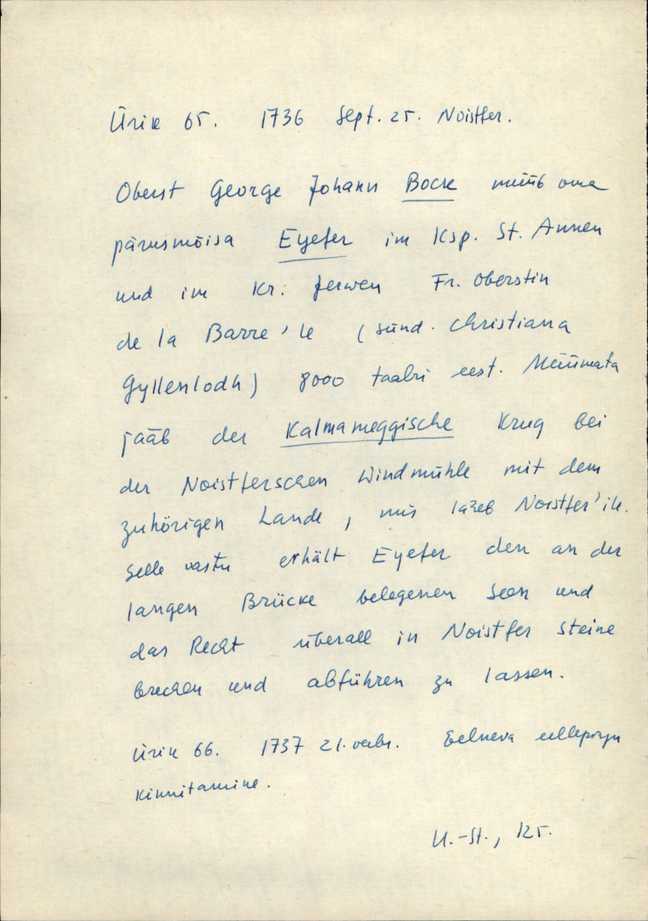 Ürik 65. 1736 Sept. 25. Noistfer.
Oberst George Johann Bock müüb oma
pärusmõisa Eyefer im Ksp. St. Annen
und im Kr. Jerwen Fr. Oberstin
de la Barre'le (sünd. Christiana
Gyllenlodh) 8000 taalri eest. Müümata
jääb der Kalmameggische Krug bei
der Noistferschen Windmühle mit dem
zuhörigen Lande, mis läheb Noistfer'ile.
Selle vastu erhält Eyefer den an der
langen Brücke belegenen Seen und
das Recht überall in Noistfer Steine
brechen und abführen zu lassen.
Ürik 66. 1737 21. veebr. Eelneva
kinnitamine.
U.-St., 125.